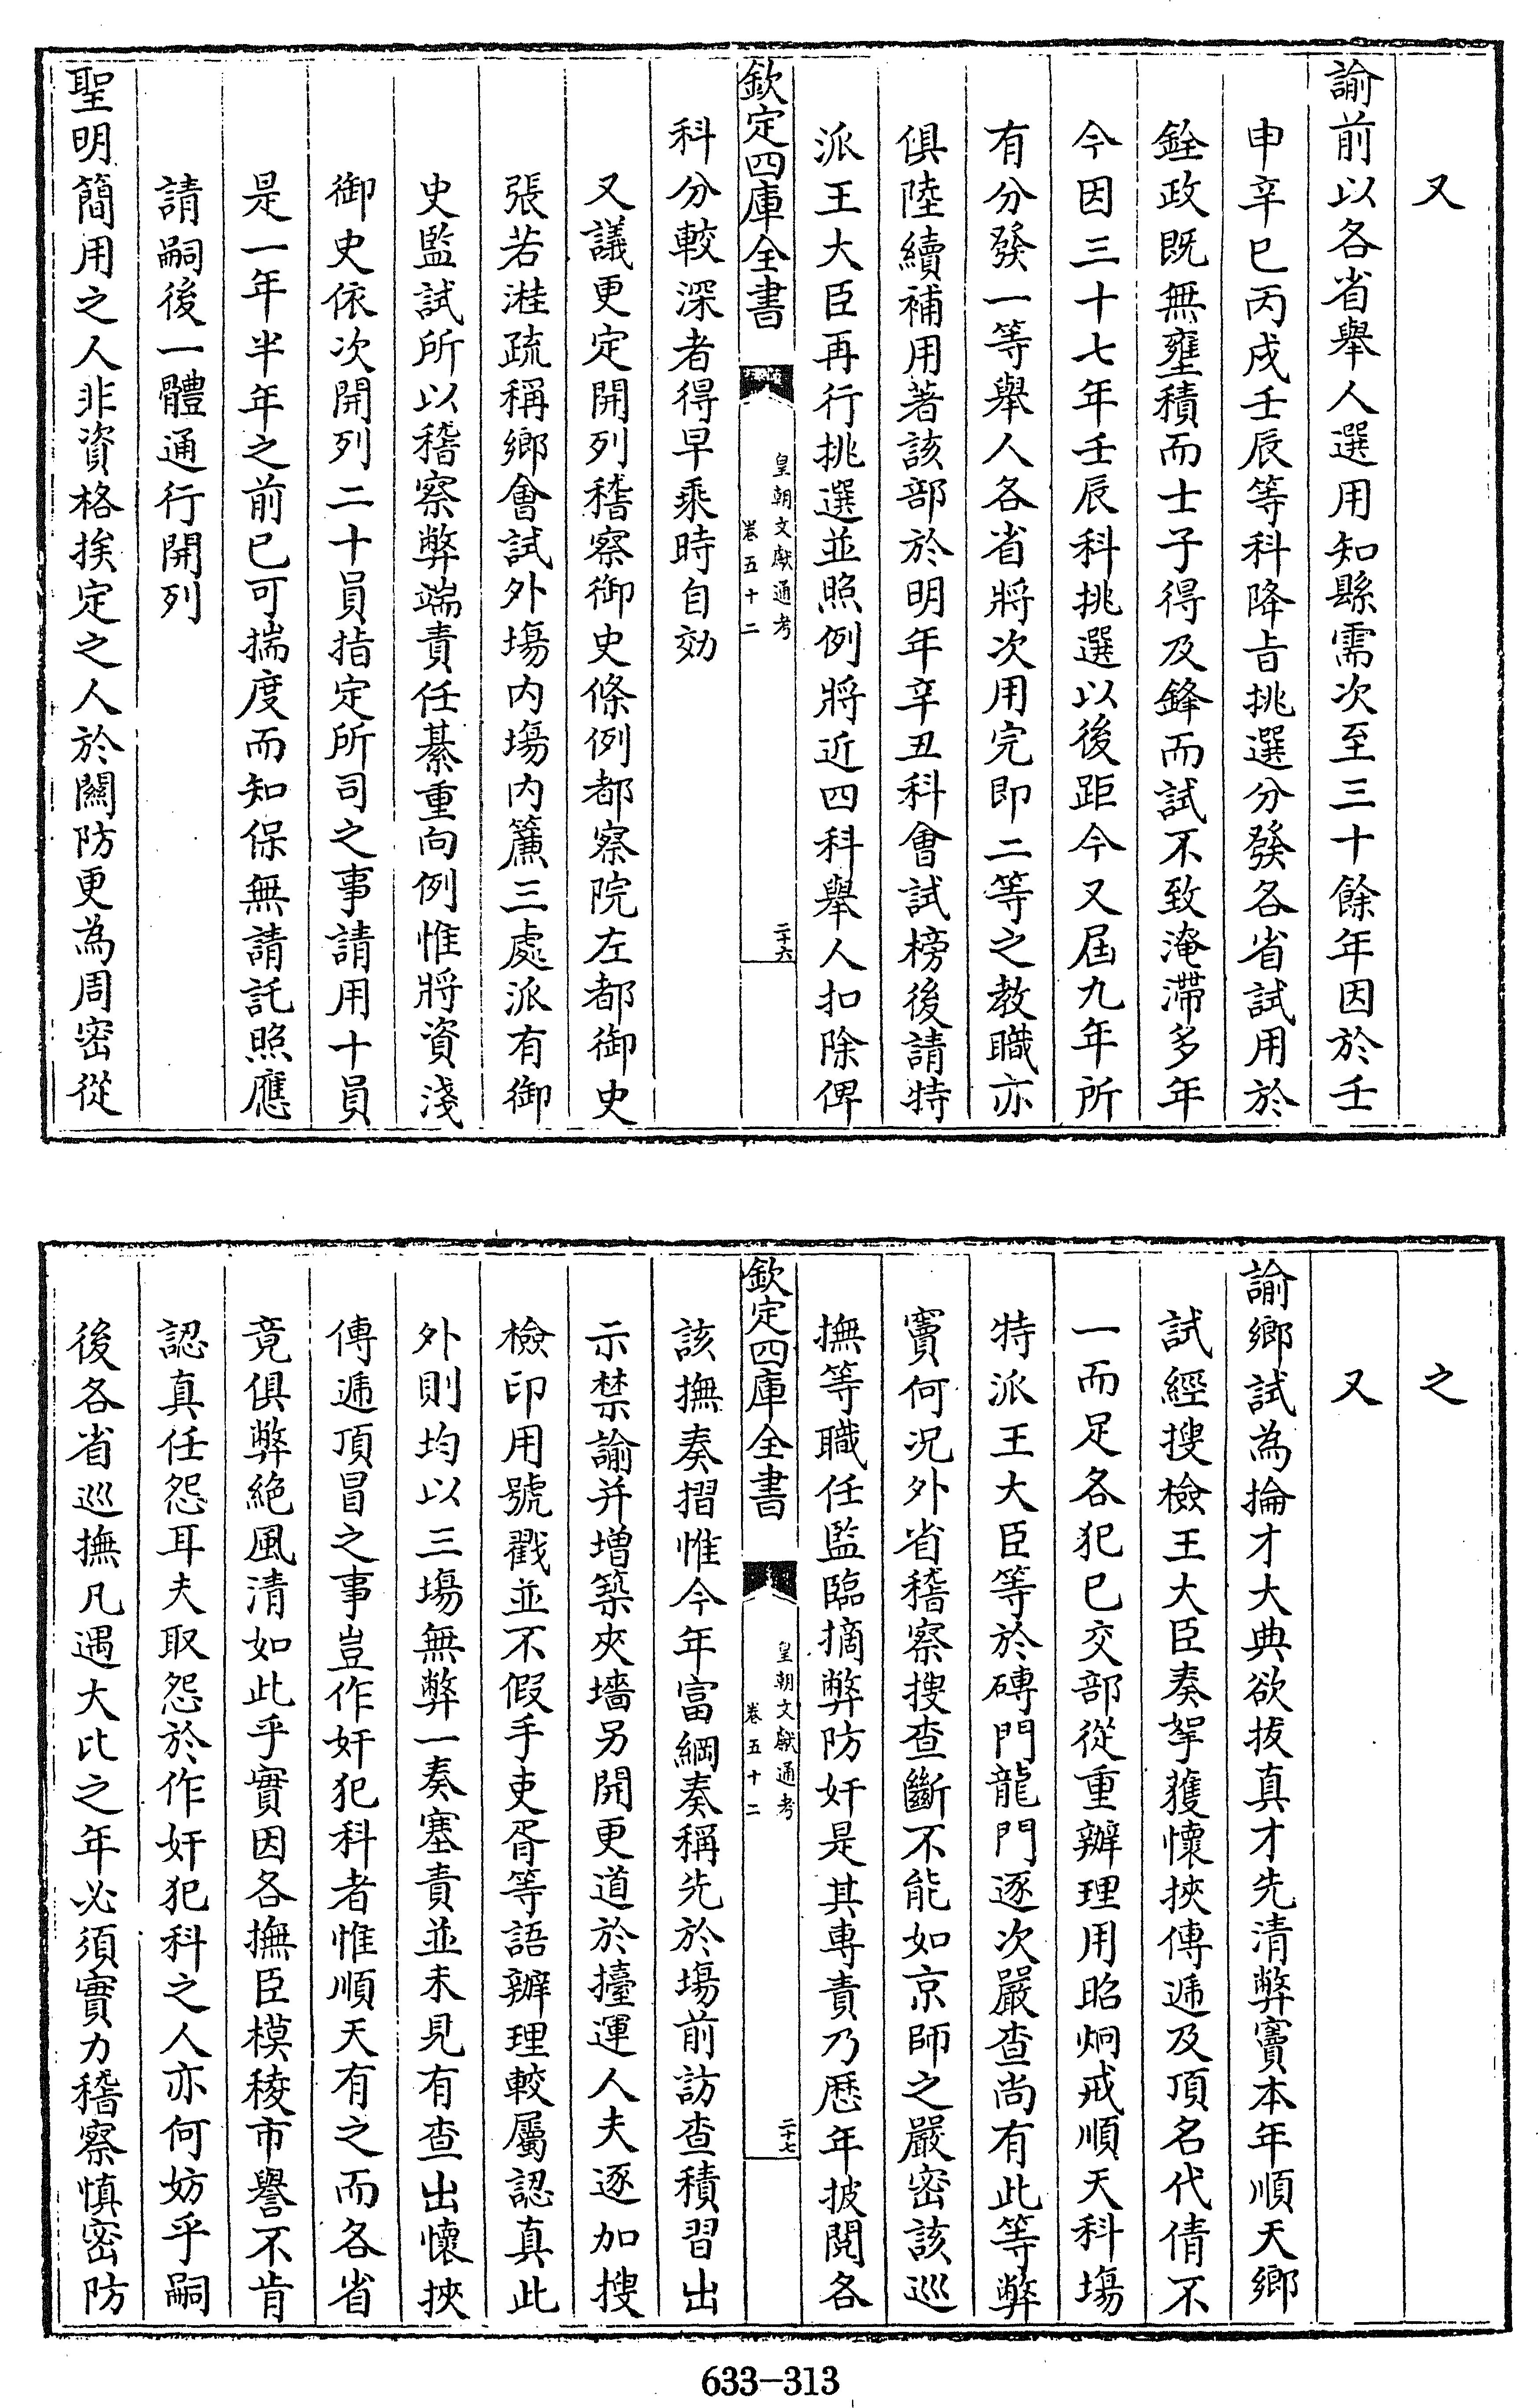 又
諭前以各省舉人選用知縣需次至三十餘年因於壬
申辛巳丙戌壬辰等科降旨挑選分發各省試用於
銓政既無壅積而士子得及鋒而試不致淹滯多年
今因三十七年壬辰科挑選以後距今又屆九年所
有分發一等舉人各省將次用完即二等之教職亦
俱陸續補用著該部於明年辛丑科會試榜後請特
派王大臣再行挑選並照例將近四科舉人扣除俾
欽定四庫全書
皇朝文獻通考
卷五十二
二十六
科分較深者得早乘時自効
又議更定開列稽察御史條例都察院左都御史
張若溎疏稱鄉會試外塲内塲内簾三處派有御
史監試所以稽察弊端責任綦重向例惟將資淺
御史依次開列二十員指定所司之事請用十員
是一年半年之前已可揣度而知保無請託照應
請嗣後一體通行開列
聖明簡用之人非資格挨定之人於關防更為周密從
之
又
諭鄉試為掄才大典欲拔真才先清弊竇本年順天鄉
試經搜檢王大臣奏拏獲懷挾傳遞及頂名代倩不
一而足各犯已交部從重辦理用昭炯戒順天科塲
特派王大臣等於磚門龍門逐次嚴查尚有此等弊
竇何況外省稽察搜查斷不能如京師之嚴密該巡
撫等職任監臨摘弊防奸是其專責乃歷年披閱各
欽定四庫全書
皇朝文獻通考
卷五十二
二十七
該撫奏摺惟今年富綱奏稱先於塲前訪查積習出
示禁諭并增築夾墻另開更道於擡運人夫逐加搜
檢印用號戳並不假手吏胥等語辦理較屬認真此
外則均以三塲無弊一奏塞責並未見有查出懷挾
傳遞頂冒之事豈作奸犯科者惟順天有之而各省
竟俱弊絕風清如此乎實因各撫臣模稜市譽不肯
認真任怨耳夫取怨於作奸犯科之人亦何妨乎嗣
後各省巡撫凡遇大比之年必須實力稽察慎密防
633-313